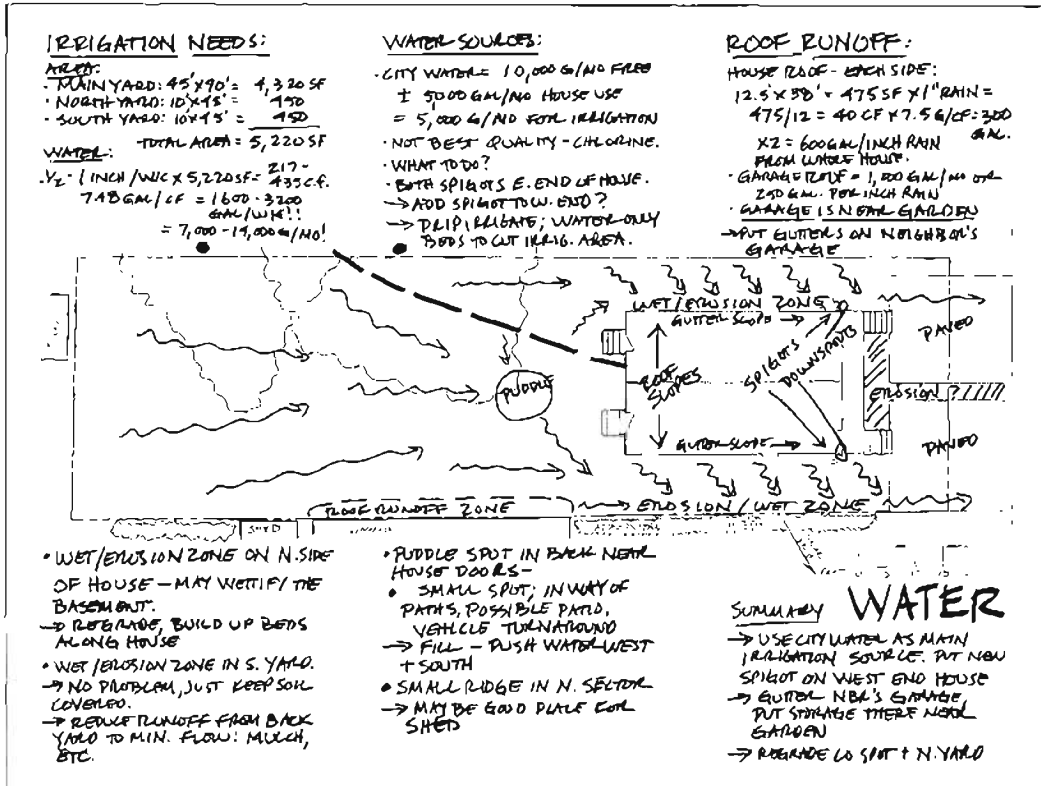 IRRIGATION NEEDS:
AREA:
· MAIN YARD: 45'X90' = 4,320 SF
· NORTH YARD: 10'X45' = 450
· SOUTH YARD: 10'X45' = 450
TOTAL AREA = 5,220 SF
WATER:
· 1/2 - 1 INCH/WK X 5,220 SF = 217-
435 C.F.
7.48 GAL/CF = 1600 - 3200
GAL/WK!!
= 7,000 - 14,000 G/MO!
WATER SOURCES:
· CITY WATER = 10,000 G/MO FREE
± 5000 GAL/MO HOUSE USE
= 5,000 G/MO FOR IRRIGATION
· NOT BEST QUALITY - CHLORINE.
· WHAT TO DO?
· BOTH SPIGOTS E. END OF HOUSE.
→ ADD SPIGOT TO W. END?
→ DRIP IRRIGATE; WATER ONLY
BEDS TO CUT IRRIG. AREA.
ROOF RUNOFF:
HOUSE ROOF - EACH SIDE:
12.5'X38' = 475 SF X 1" RAIN =
475/12 = 40 CF X 7.5 G/CF = 300
GAL.
X2 = 600 GAL/INCH RAIN
FROM WHOLE HOUSE.
· GARAGE ROOF = 1,000 GAL/MO OR
250 GAL. PER INCH RAIN
· GARAGE IS NEAR GARDEN
→ PUT GUTTERS ON NEIGHBOR'S
GARAGE
WET/EROSION ZONE
GUTTER SLOPE →
PAVED
ROOF
SLOPES
SPIGOTS
DOWNSPOUTS
PUDDLE
EROSION?
GUTTER SLOPE →
PAVED
ROOF RUNOFF ZONE
→ EROSION / WET ZONE
SHED
· WET/EROSION ZONE ON N. SIDE
OF HOUSE - MAY WETTIFY THE
BASEMENT.
→ REGRADE, BUILD UP BEDS
ALONG HOUSE
· WET/EROSION ZONE IN S. YARD.
→ NO PROBLEM, JUST KEEP SOIL
COVERED.
→ REDUCE RUNOFF FROM BACK
YARD TO MIN. FLOW: MULCH,
ETC.
· PUDDLE SPOT IN BACK NEAR
HOUSE DOORS -
· SMALL SPOT; IN WAY OF
PATHS, POSSIBLE PATIO,
VEHICLE TURNAROUND
→ FILL - PUSH WATER WEST
+ SOUTH
· SMALL RIDGE IN N. SECTOR
→ MAY BE GOOD PLACE FOR
SHED
SUMMARY WATER
→ USE CITY WATER AS MAIN
IRRIGATION SOURCE. PUT NEW
SPIGOT ON WEST END HOUSE
→ GUTTER NBR'S GARAGE,
PUT STORAGE THERE NEAR
GARDEN
→ REGRADE LO SPOT + N. YARD